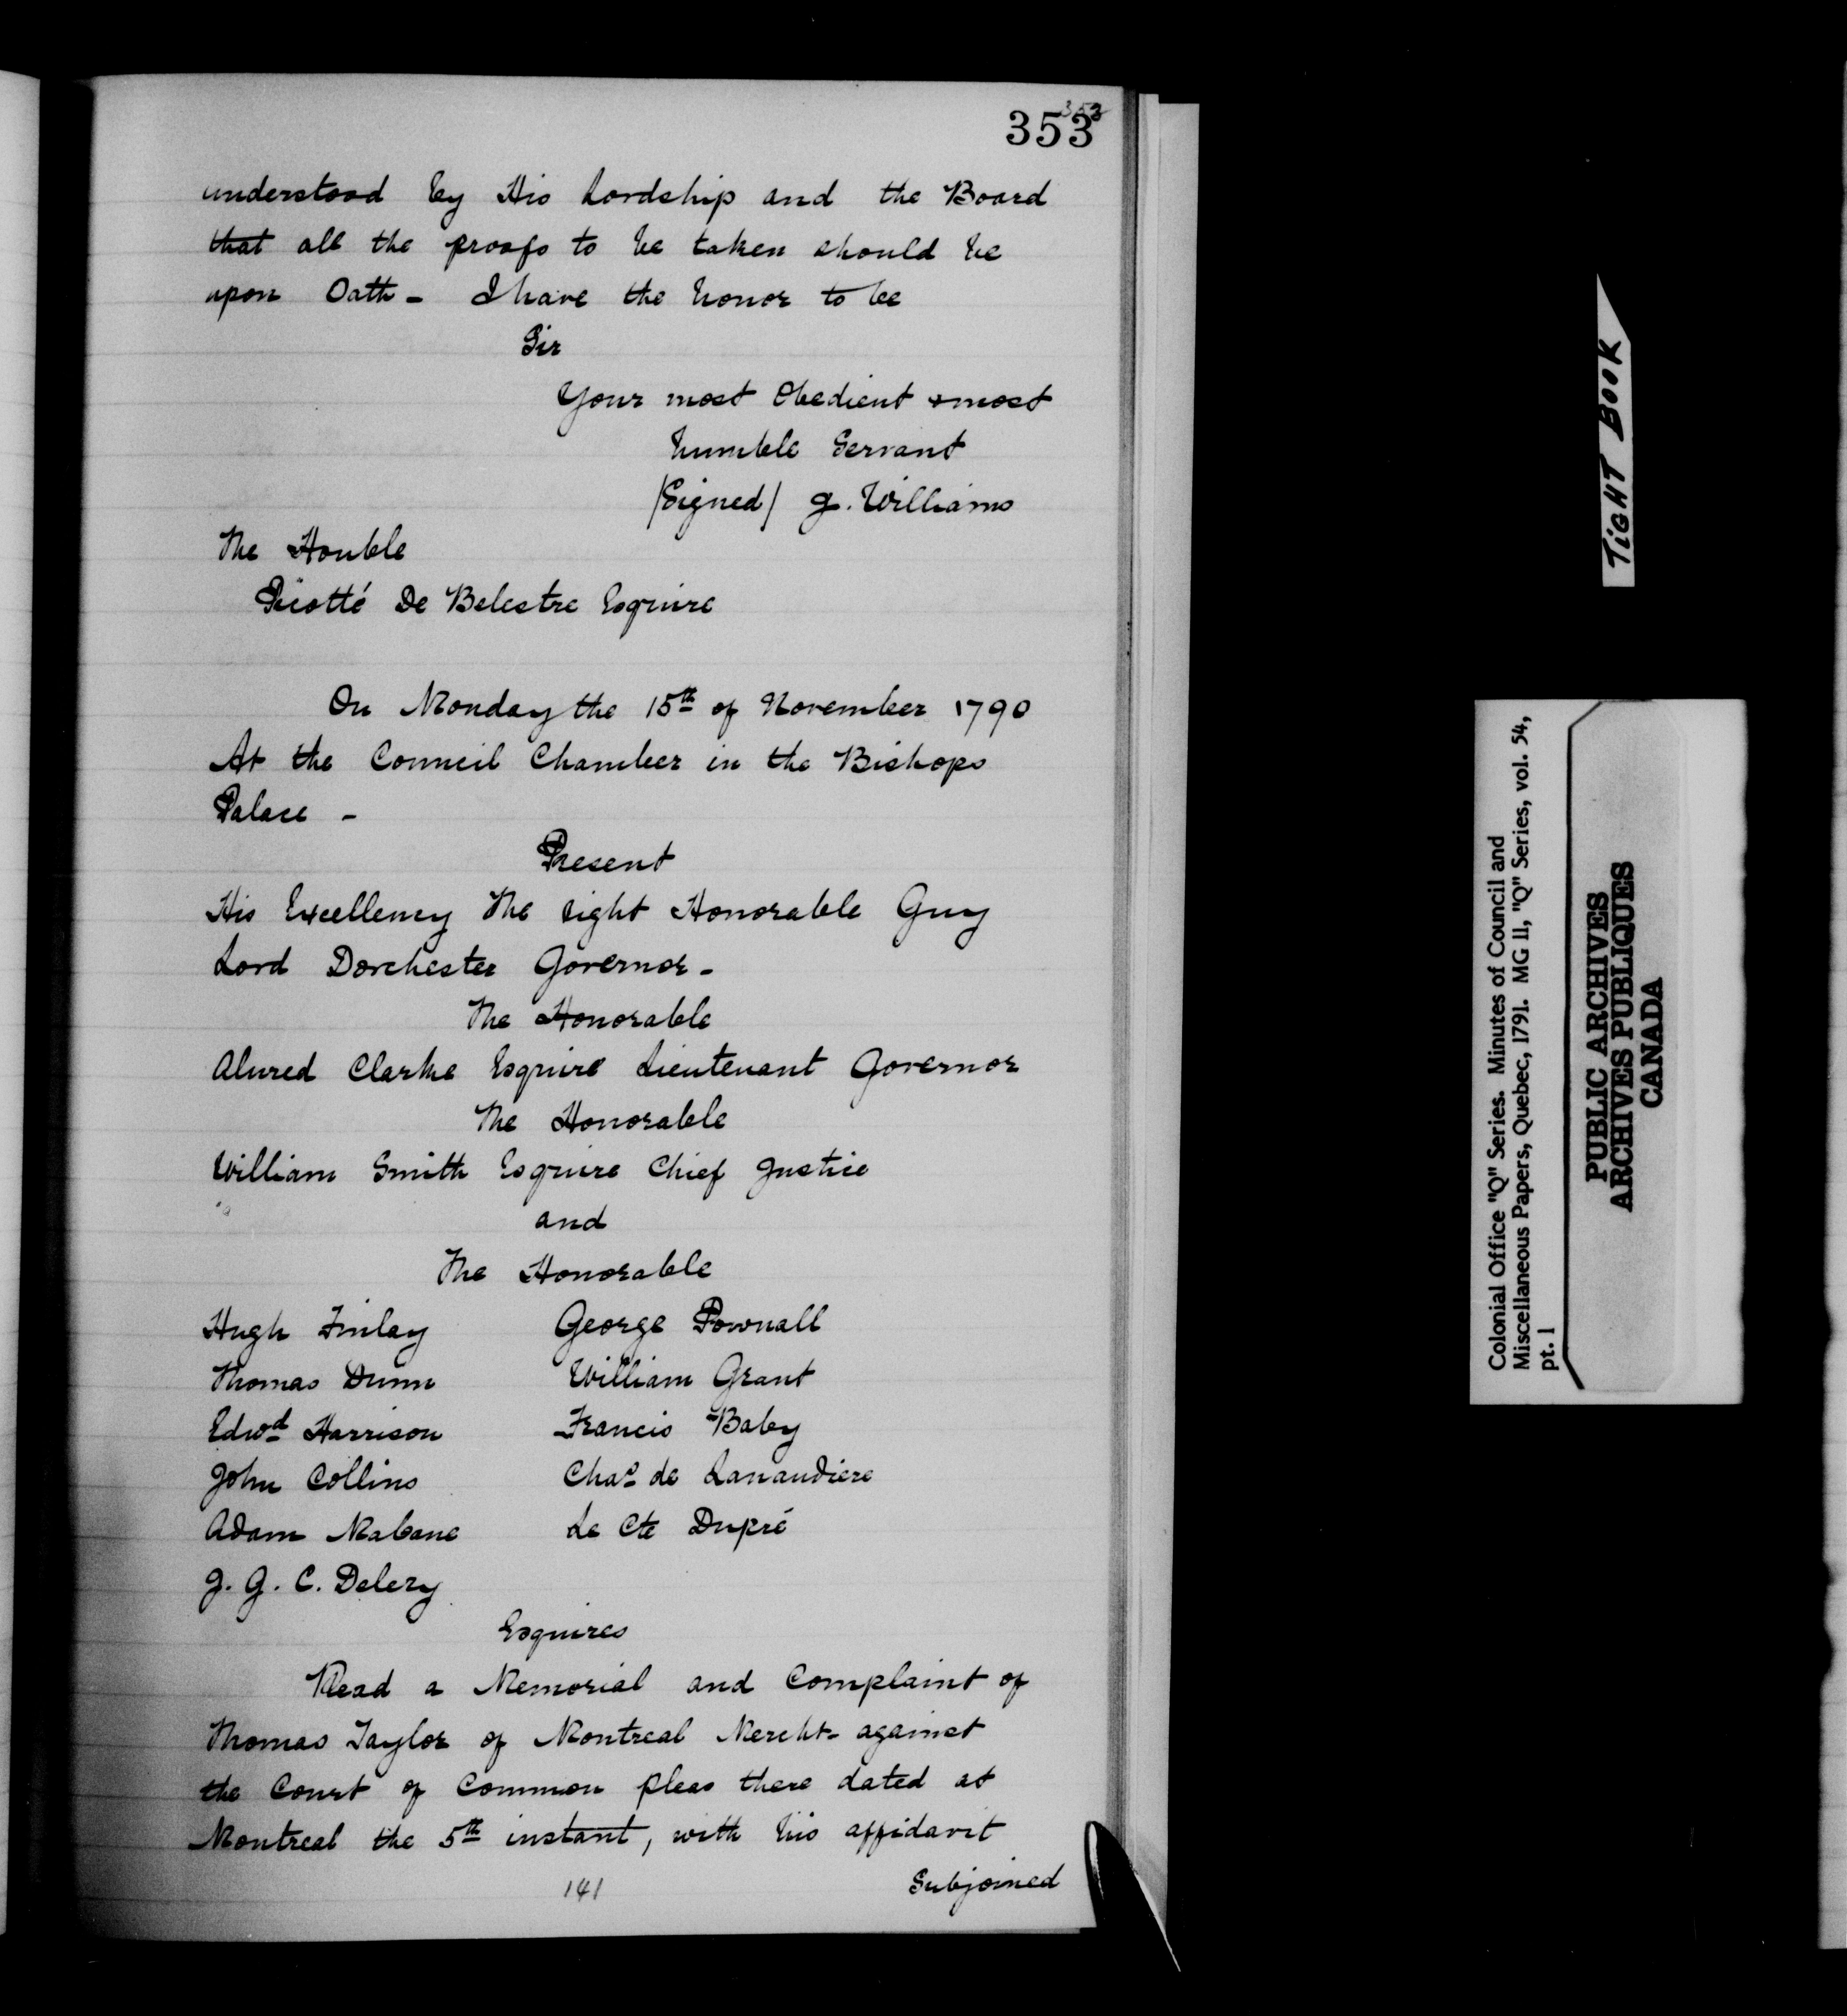 353
understood by His Lordship and the Board
that all the proofs to be taken should be
upon Oath - I have the honor to be
Sir
Your most Obedient & most
humble Servant
/Signed/ J. Williams
The Honble
Picotté De Belestre Esquire
On Monday the 15th of November 1790
At the Council Chamber in the Bishops
Palace -
Present
His Excellency The right Honorable Guy
Lord Dorchester Governor -
The Honorable
Alured Clarke Esquire Lieutenant Governor
The Honorable
William Smith Esquire Chief Justice
and
The Honorable
Hugh Finlay George Pownall
Thomas Dunn William Grant
Edwd Harrison Francis Baby
John Collins Chas de Lanaudiere
Adam Mabane Le Cte Dupré
J. G. C. Delery
Esquires
Read a Memorial and Complaint of
Thomas Taylor of Montreal Mercht - against
the Court of Common pleas there dated at
Montreal the 5th instant, with his affidavit
Subjoined
141
TIGHT BOOK
Colonial Office "Q" Series. Minutes of Council and
Miscellaneous Papers, Quebec, 1791. MG 11, "Q" Series, vol. 54,
pt. 1
PUBLIC ARCHIVES
ARCHIVES PUBLIQUES
CANADA